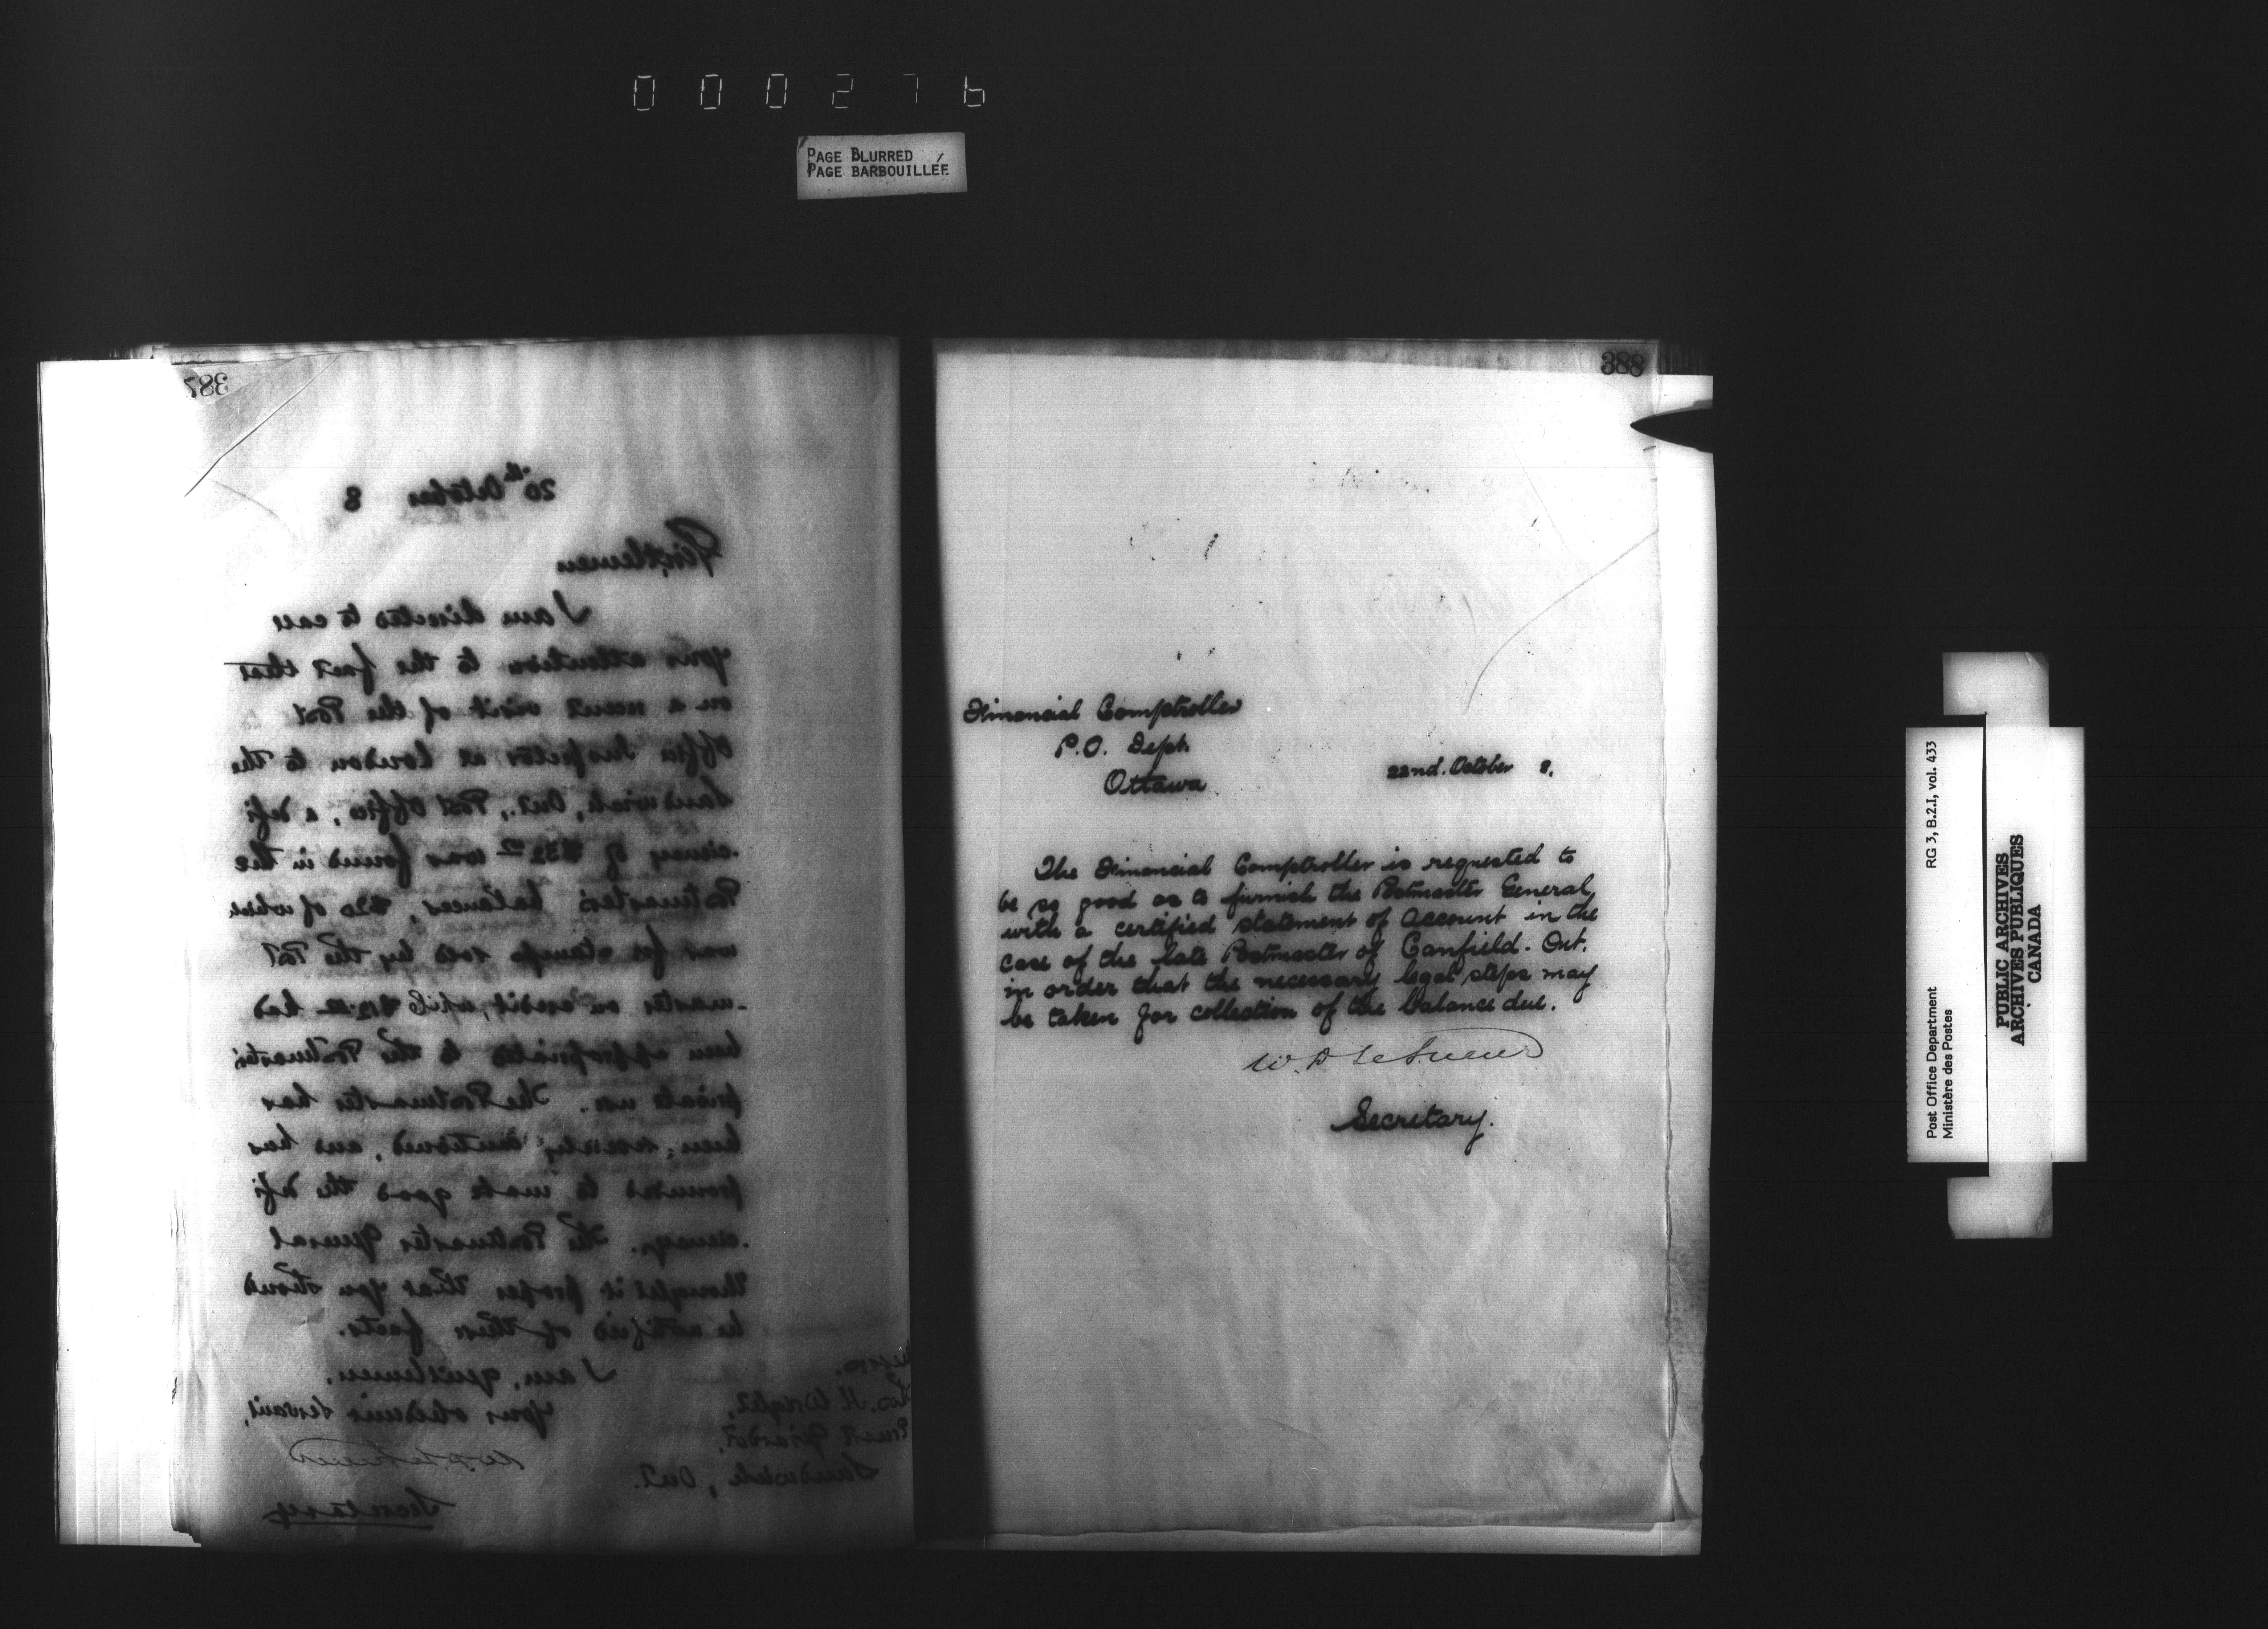 000276
PAGE BLURRED
PAGE BARBOUILLÉE
387
20th October 8
Gentlemen
I am directed to call
your attention to the fact that
on a recent visit of the Post
Office Inspector at London to the
Sandwich, Ont., Post Office, a defi
-ciency of was found in the
Postmaster's balances, $20 of which
was for stamps sold by the Post
-master on credit, while had
been appropriated to the Postmaster's
private use. The Postmaster has
been severely cautioned, and has
promised to make good the defi
-ciency. The Postmaster General
thought it proper that you should
be notified of these facts.
I am, gentlemen,
Your obedient servant,
W D LeSueur
Secretary
H. Wright,
Ernest Girardot,
Sandwich, Ont.
388
Financial Comptroller
P.O. Dept.
Ottawa
22nd. October 8.
The Financial Comptroller is requested to
be so good as to furnish the Postmaster General
with a certified statement of account in the
case of the late Postmaster of Canfield. Ont.
in order that the necessary legal steps may
be taken for collection of the balance due.
W. D LeSueur
Secretary.
Post Office Department RG 3, B.2.I, vol. 433
Ministère des Postes
PUBLIC ARCHIVES
ARCHIVES PUBLIQUES
CANADA